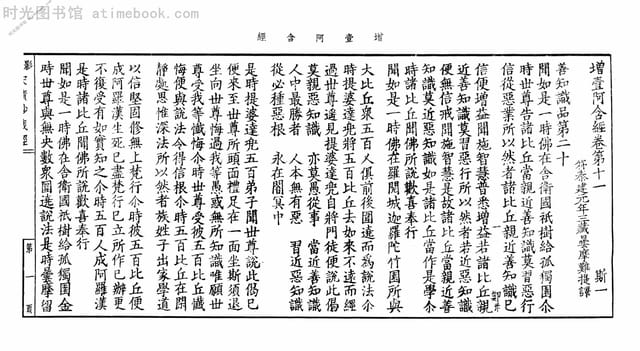 时光图书馆 - atimebook.com
增壹阿含經
增壹阿含經卷第十一 斯一
符秦建元年三藏曇摩難提譯
善知識品第二十
聞如是一時佛在舍衛國祇樹給孤獨園尒
時世尊告諸比丘當親近善知識莫習惡行
信於惡業所以然者諸比丘親近善知識已
信便增益聞施智慧普悉增益若諸比丘親
近善知識莫習惡行所以然者若近惡知識
便無信戒聞施智慧是故諸比丘當親近善
知識莫近惡知識如是諸比丘當作是學尒
時諸比丘聞佛所說歡喜奉行
聞如是一時佛在羅閱城迦羅陀竹園所與
大比丘眾五百人俱前後圍遶而為說法尒
時提婆達兜將五百比丘去如來不遠而經
過世尊遙見提婆達兜自將門徒便說此偈
莫親惡知識 亦莫愚從事 當近善知識
人中最勝者 人本無有惡 習近惡知識
後必種惡根 永在闇冥中
是時提婆達兜五百弟子聞世尊說此偈已
便來至世尊所頭面禮足在一面坐斯須退
坐向世尊悔過我等愚惑無所識知唯願世
尊受我等懺悔尒時世尊受彼五百比丘懺
悔便與說法令得信根尒時五百比丘在閑
靜處思惟深法所以然者族姓子出家學道
以信堅固修無上梵行尒時彼五百比丘便
成阿羅漢生死已盡梵行已立所作已辦更
不復受有如實知之尒時五百人成阿羅漢
是時諸比丘聞佛所說歡喜奉行
聞如是一時佛在舍衛國祇樹給孤獨園尒
時世尊與無央數眾圍遶說法是時曇摩留
第一頁